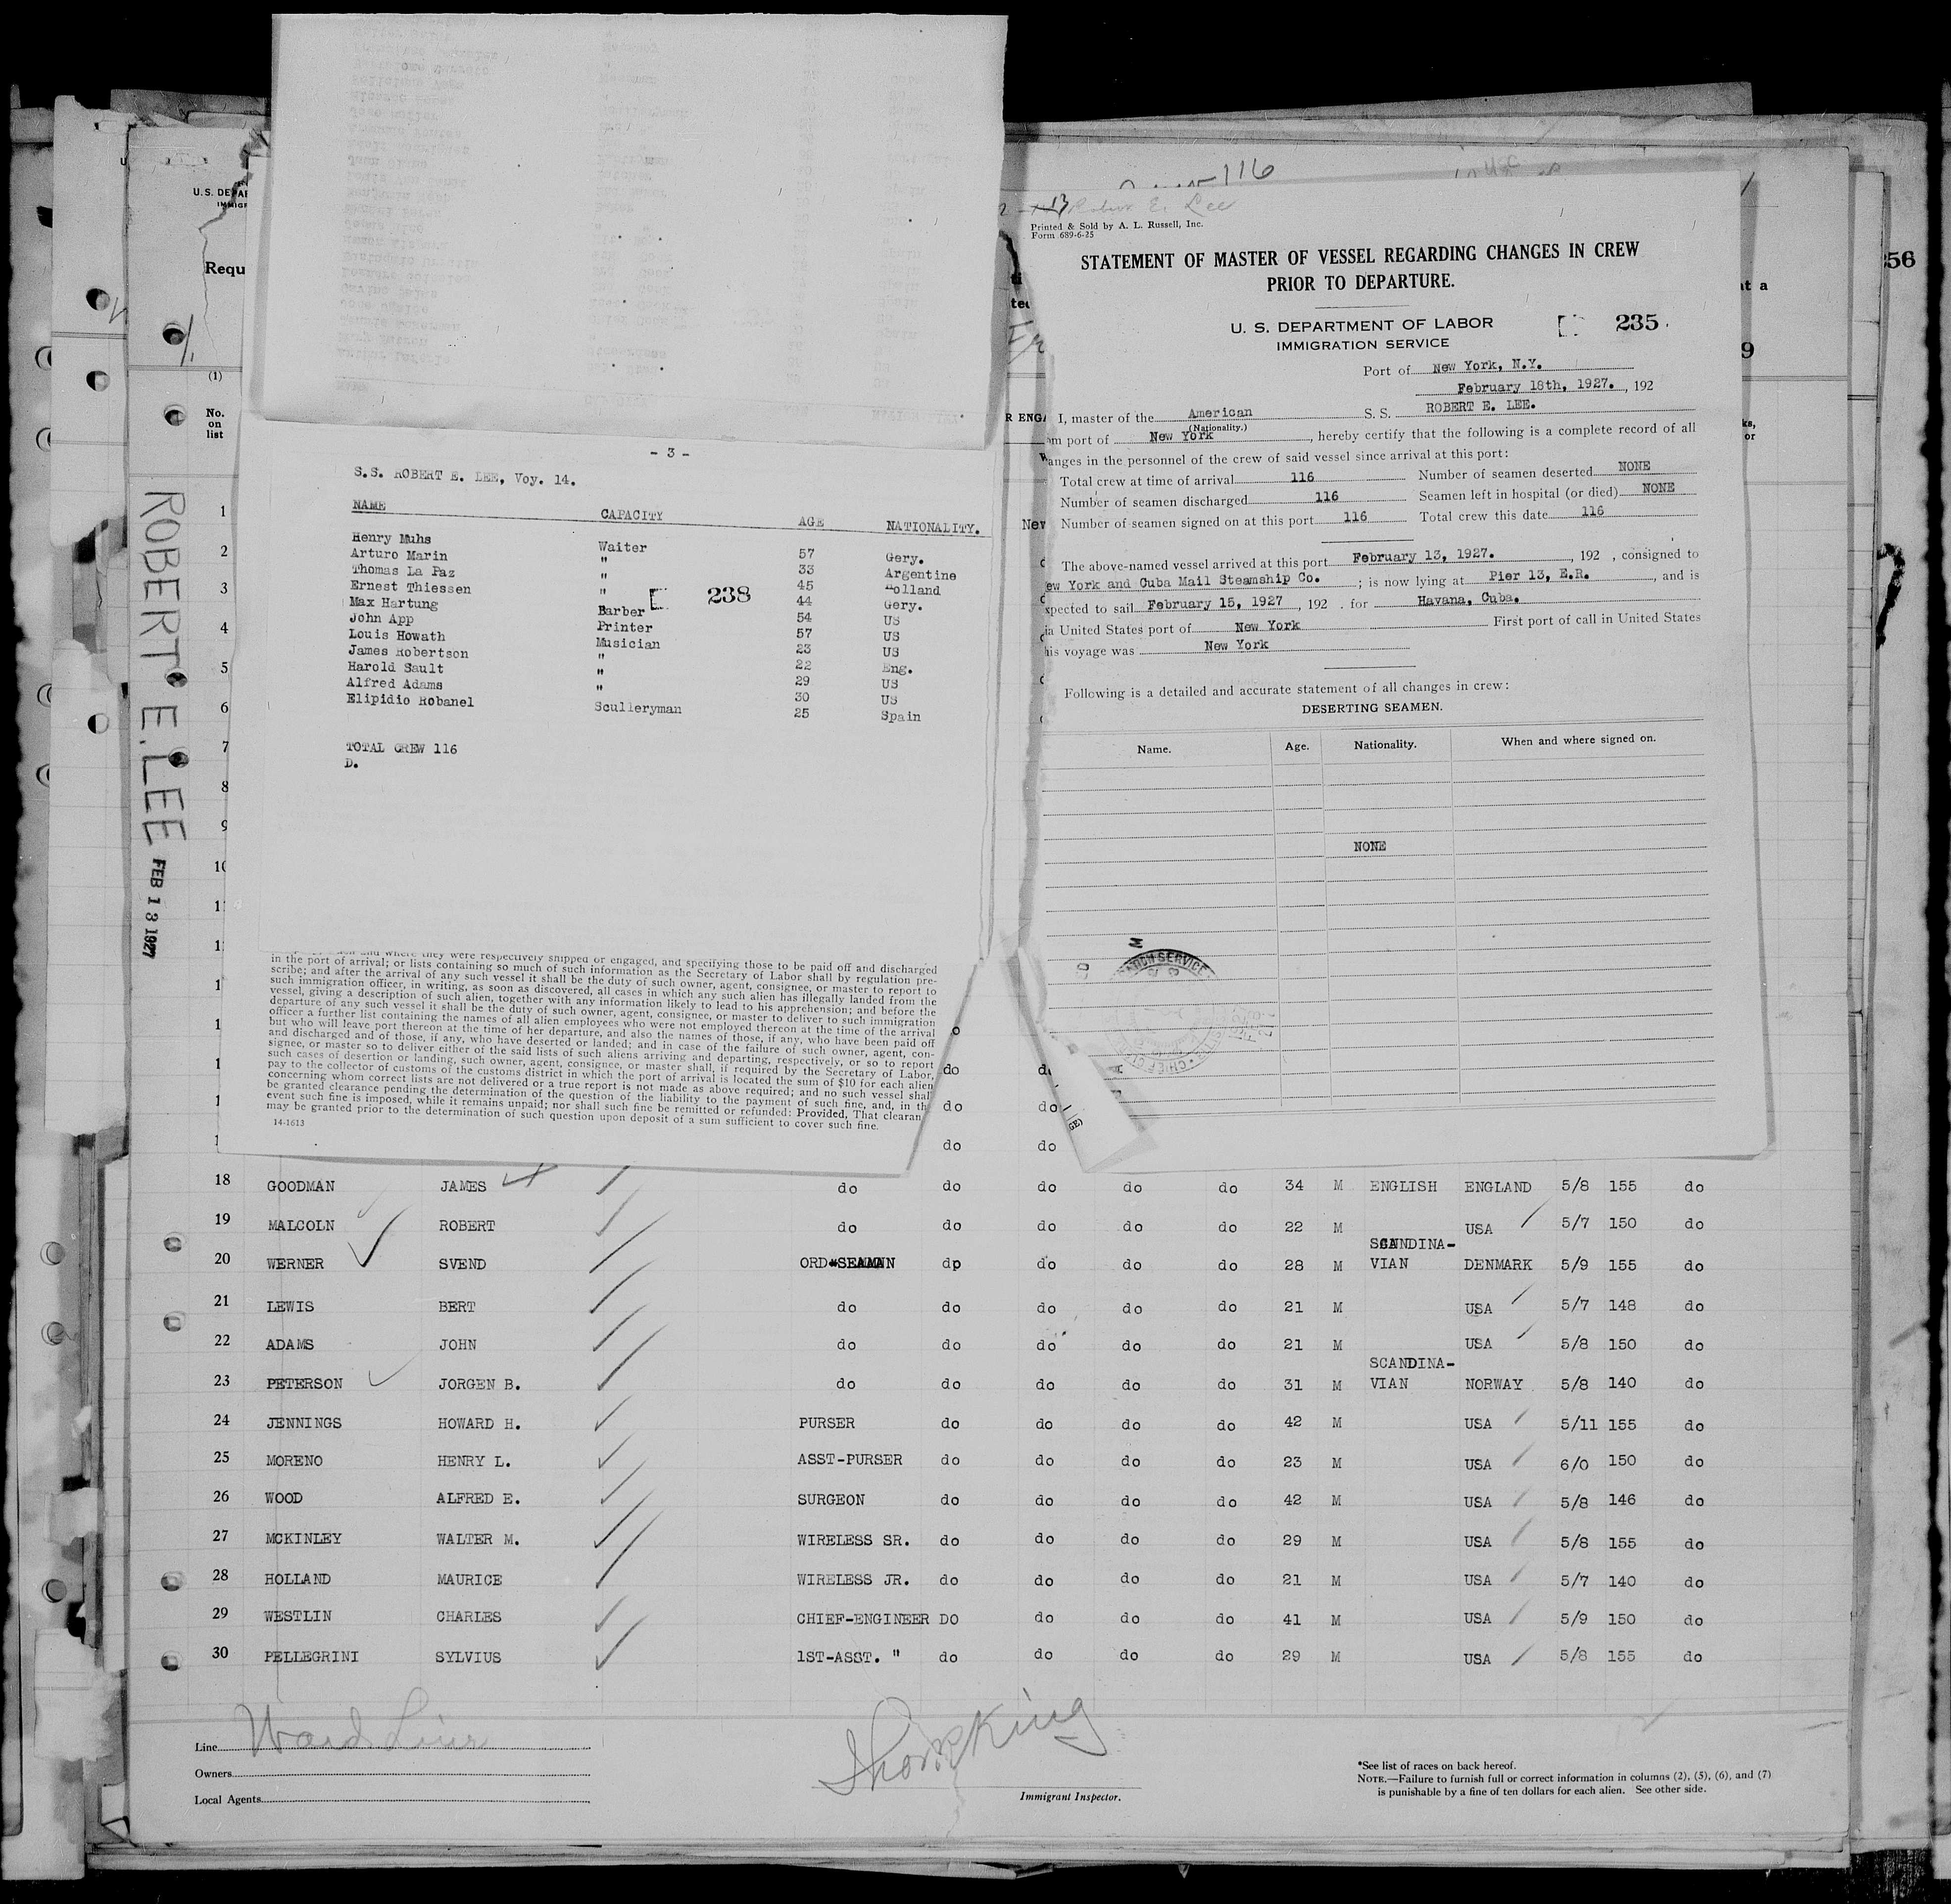 116
Robert E. Lee
Printed & Sold by A. L. Russell, Inc.
Form 689-6-25
STATEMENT OF MASTER OF VESSEL REGARDING CHANGES IN CREW
PRIOR TO DEPARTURE.
U. S. DEPARTMENT OF LABOR
IMMIGRATION SERVICE
235
Port of New York, N.Y.
February 18th, 1927. , 192
I, master of the American S. S. ROBERT E. LEE.
(Nationality.)
port of New York , hereby certify that the following is a complete record of all
anges in the personnel of the crew of said vessel since arrival at this port:
Total crew at time of arrival 116 Number of seamen deserted NONE
Number of seamen discharged 116 Seamen left in hospital (or died) NONE
Number of seamen signed on at this port 116 Total crew this date 116
The above-named vessel arrived at this port February 13, 1927. , 192 , consigned to
ew York and Cuba Mail Steamship Co. ; is now lying at Pier 13, E.R. , and is
xpected to sail February 15, 1927 , 192 . for Havana, Cuba.
ia United States port of New York First port of call in United States
his voyage was New York
Following is a detailed and accurate statement of all changes in crew:
DESERTING SEAMEN.
Name. Age. Nationality. When and where signed on.
NONE
- 3 -
S.S. ROBERT E. LEE, Voy. 14.
NAME CAPACITY AGE NATIONALITY.
Henry Muhs Waiter 57 Gery.
Arturo Marin " 33 Argentine
Thomas La Paz " 45 Holland
Ernest Thiessen " 44 Gery.
Max Hartung Barber 54 US
John App Printer 57 US
Louis Howath Musician 23 US
James Robertson " 22 Eng.
Harold Sault " 29 US
Alfred Adams " 30 US
Elipidio Robanel Sculleryman 25 Spain
238
TOTAL CREW 116
D.
in the port of arrival; or lists containing so much of such information as the Secretary of Labor shall by regulation pre-
scribe; and after the arrival of any such vessel it shall be the duty of such owner, agent, consignee, or master to report to
such immigration officer, in writing, as soon as discovered, all cases in which any such alien has illegally landed from the
vessel, giving a description of such alien, together with any information likely to lead to his apprehension; and before the
departure of any such vessel it shall be the duty of such owner, agent, consignee, or master to deliver to such immigration
officer a further list containing the names of all alien employees who were not employed thereon at the time of the arrival
but who will leave port thereon at the time of her departure, and also the names of those, if any, who have been paid off
and discharged and of those, if any, who have deserted or landed; and in case of the failure of such owner, agent, con-
signee, or master so to deliver either of the said lists of such aliens arriving and departing, respectively, or so to report
such cases of desertion or landing, such owner, agent, consignee, or master shall, if required by the Secretary of Labor,
pay to the collector of customs of the customs district in which the port of arrival is located the sum of $10 for each alien
concerning whom correct lists are not delivered or a true report is not made as above required; and no such vessel shal
be granted clearance pending the determination of the question of the liability to the payment of such fine, and, in th
event such fine is imposed, while it remains unpaid; nor shall such fine be remitted or refunded: Provided, That clearan
may be granted prior to the determination of such question upon deposit of a sum sufficient to cover such fine.
14-1613
ROBERT E. LEE FEB 13 1927
U.S. DEPA
IMMIGR
Requ
(1)
No.
on
list
1
2
3
4
5
6
7
8
9
18 GOODMAN JAMES do do do do do 34 M ENGLISH ENGLAND 5/8 155 do
19 MALCOLN ROBERT do do do do do 22 M USA 5/7 150 do
20 WERNER SVEND ORD SEAMAN do do do do 28 M SCANDINA-
VIAN DENMARK 5/9 155 do
21 LEWIS BERT do do do do do 21 M USA 5/7 148 do
22 ADAMS JOHN do do do do do 21 M USA 5/8 150 do
23 PETERSON JORGEN B. do do do do do 31 M SCANDINA-
VIAN NORWAY 5/8 140 do
24 JENNINGS HOWARD H. PURSER do do do do 42 M USA 5/11 155 do
25 MORENO HENRY L. ASST-PURSER do do do do 23 M USA 6/0 150 do
26 WOOD ALFRED E. SURGEON do do do do 42 M USA 5/8 146 do
27 MCKINLEY WALTER M. WIRELESS SR. do do do do 29 M USA 5/8 155 do
28 HOLLAND MAURICE WIRELESS JR. do do do do 21 M USA 5/7 140 do
29 WESTLIN CHARLES CHIEF-ENGINEER DO do do do 41 M USA 5/9 150 do
30 PELLEGRINI SYLVIUS 1ST-ASST. " do do do do 29 M USA 5/8 155 do
Line Ward Line
Owners
Local Agents
Immigrant Inspector.
*See list of races on back hereof.
NOTE.—Failure to furnish full or correct information in columns (2), (5), (6), and (7)
is punishable by a fine of ten dollars for each alien. See other side.